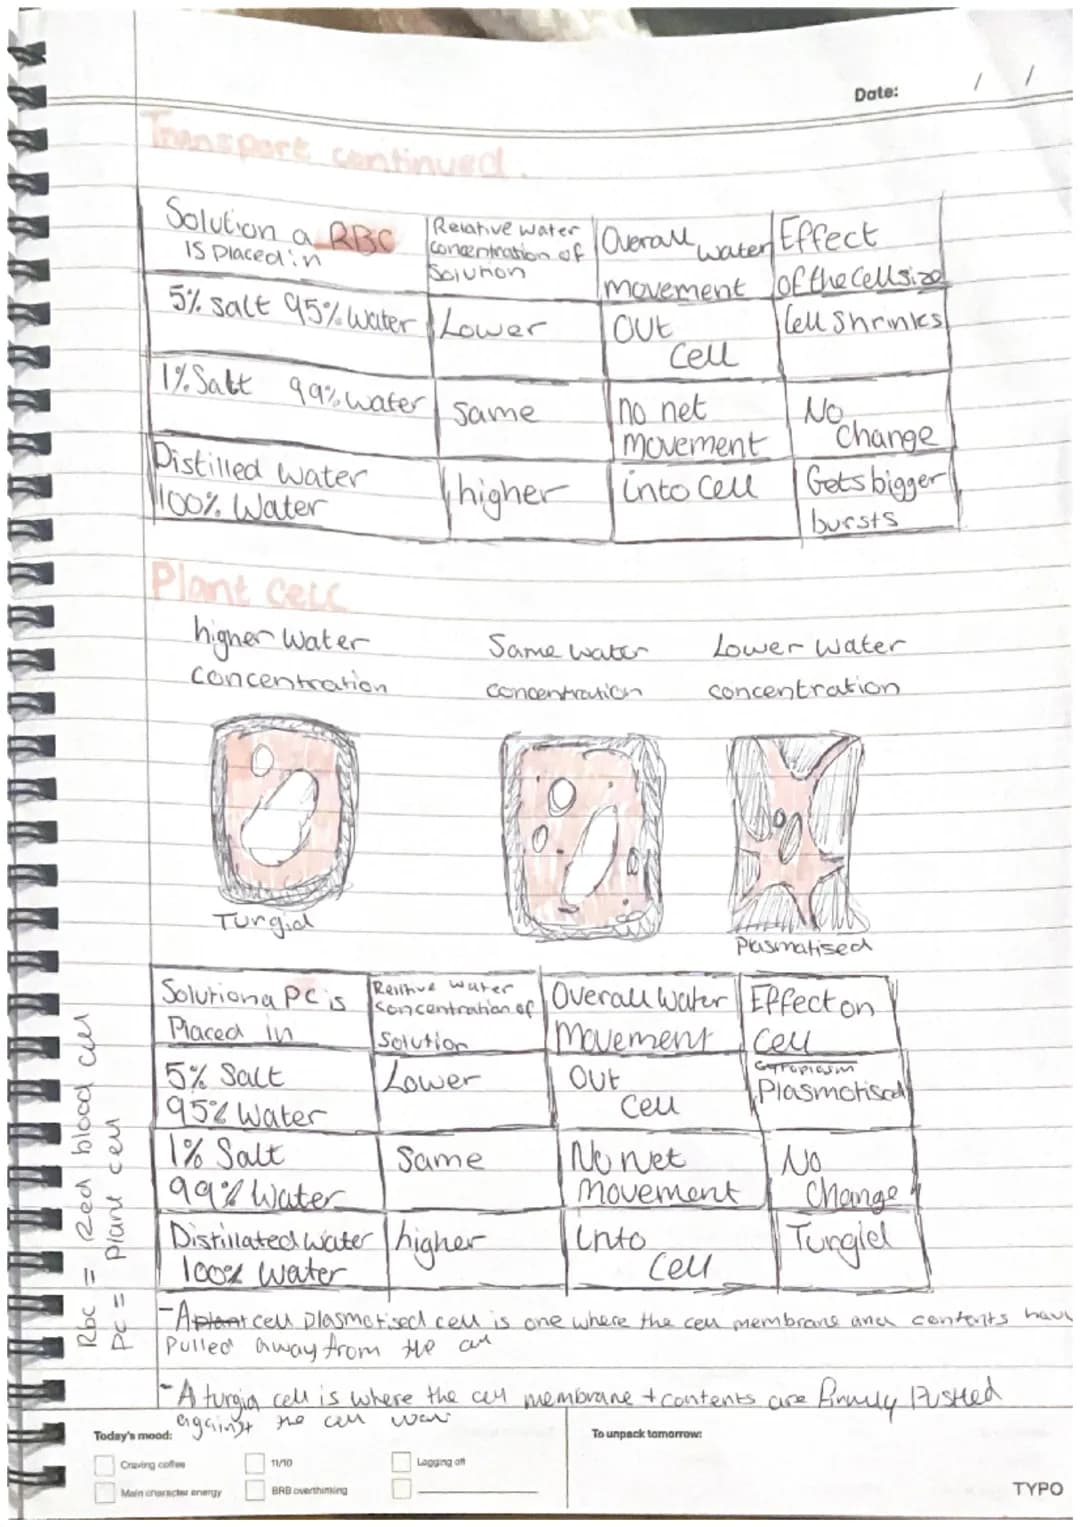 Date: / /
Transport continued.
Solution a RBC
is placed in
Relative water
concentration of
solution
Overall water
movement
Effect
of the cell size
5% salt 95% water
Lower
Out
cell
Cell shrinks
1% Salt 99% water
same
no net
movement
No
change
Distilled water
100% Water
higher
into cell
Gets bigger
bursts
Plant cell
higher water
concentration
Same water
concentration
Lower water
concentration
Turgid
Plasmatised
Solution a PC is
Placed in
Relitive water
concentration of
solution
Overall water
Movement
Effect on
cell
5% Salt
95% Water
Lower
Out
cell
Cytoplasm
Plasmotised
1% Salt
99% Water
Same
No net
movement
No
change
Distillated water
100% Water
higher
into
cell
Turgid
Rbc = Red blood cell
Pc = plant cell
- A plant cell plasmotised cell is one where the cell membrane and contents have
pulled away from the
- A turgid cell is where the cell membrane + contents are firmly Pushed
against the cell wall
Today's mood:
Craving coffee
11/10
Lagging off
Main character energy
BRB overthinking
To unpack tomorrow:
TYPO